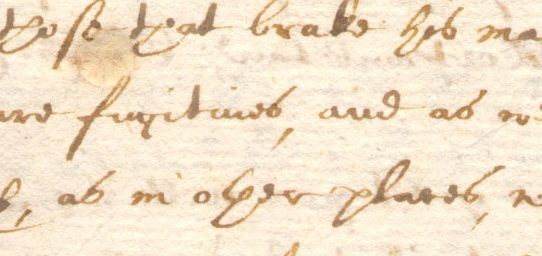 those that brake his ma
are fugitives, and as we
, as in other places,